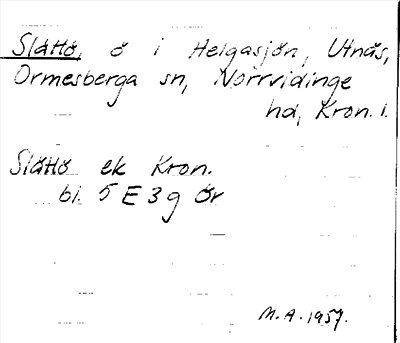 Slättö, ö i Helgasjön, Utnäs,
Ormesberga sn, Norrvidinge
hd, Kron. l.
Slättö ek Kron.
bl. 5 E 3 g Ör
M.A. 1957.